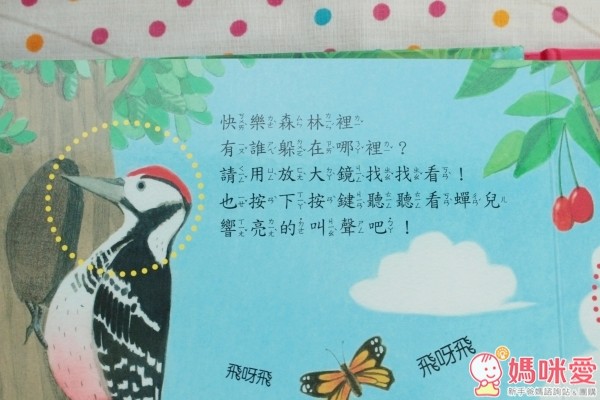 快樂森林裡
有誰躲在哪裡？
請用放大鏡找找看！
也按下按鍵聽聽看蟬兒
響亮的叫聲吧！
飛呀飛
飛呀飛
媽咪愛
新手爸媽諮詢站&團購